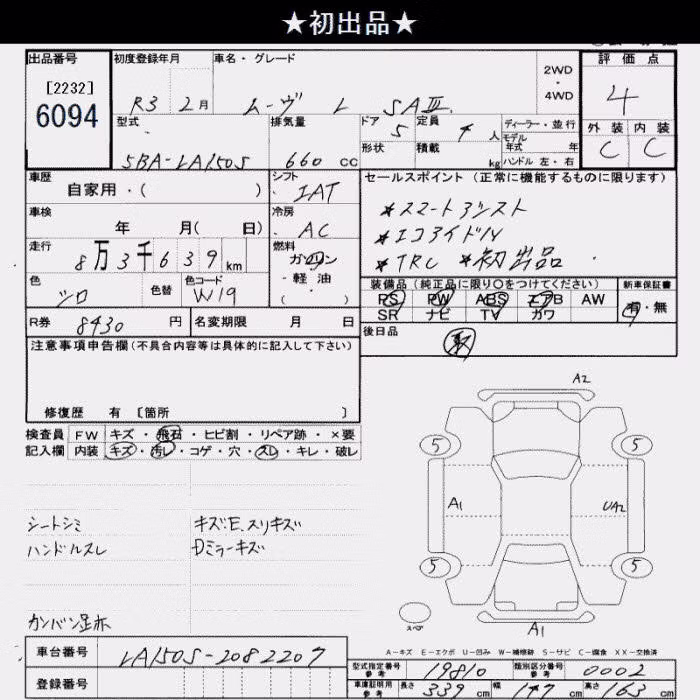 ★初出品★
出品番号 初度登録年月 車名・グレード 評価点
[2232] 2WD
6094 R3 2月 ムーヴ L SAⅢ ・ 4WD 4
型式 排気量 ドア 5 定員 4 人 ディーラー・並行 外装 内装
モデル年式 年
5BA-LA150S 660 cc 形状 積載 kg ハンドル 左・右 C C
車歴 シフト セールスポイント (正常に機能するものに限ります)
自家用・( ) IAT ★スマートアシスト
車検 冷房 ★エコアイドル
年 月( 日) AC ★TRC ★初出品
走行 燃料
8万3千639km ガソリン
色 色替 色コード ・軽油 装備品 (純正品に限り○をつけてください) 新車保証書
シロ W19 ・( ) PS PW ABS エアB AW 有・無
SR ナビ TV カワ
R券 8430 円 名変期限 月 日 後日品
注意事項申告欄 (不具合内容等は具体的に記入して下さい) 取
修復歴 有 〔箇所 〕
検査員 FW キズ・飛石・ヒビ割・リペア跡・×要
記入欄 内装 キズ・汚レ・コゲ・穴・スレ・キレ・破レ
A2
5 5
A1 UA2
5 5
スペア
A1
シートシミ キズ・E、スリキズ
ハンドルスレ Dミラーキズ
カンバン足赤
A-キズ E-エクボ U-凹み W-補修跡 S-サビ C-腐食 XX-交換済
車台番号 LA150S-2082207
登録番号
型式指定番号 参考 19810 類別区分番号 参考 0002
車庫証明用 参考 長さ 339 cm 幅 147 cm 高さ 163 cm